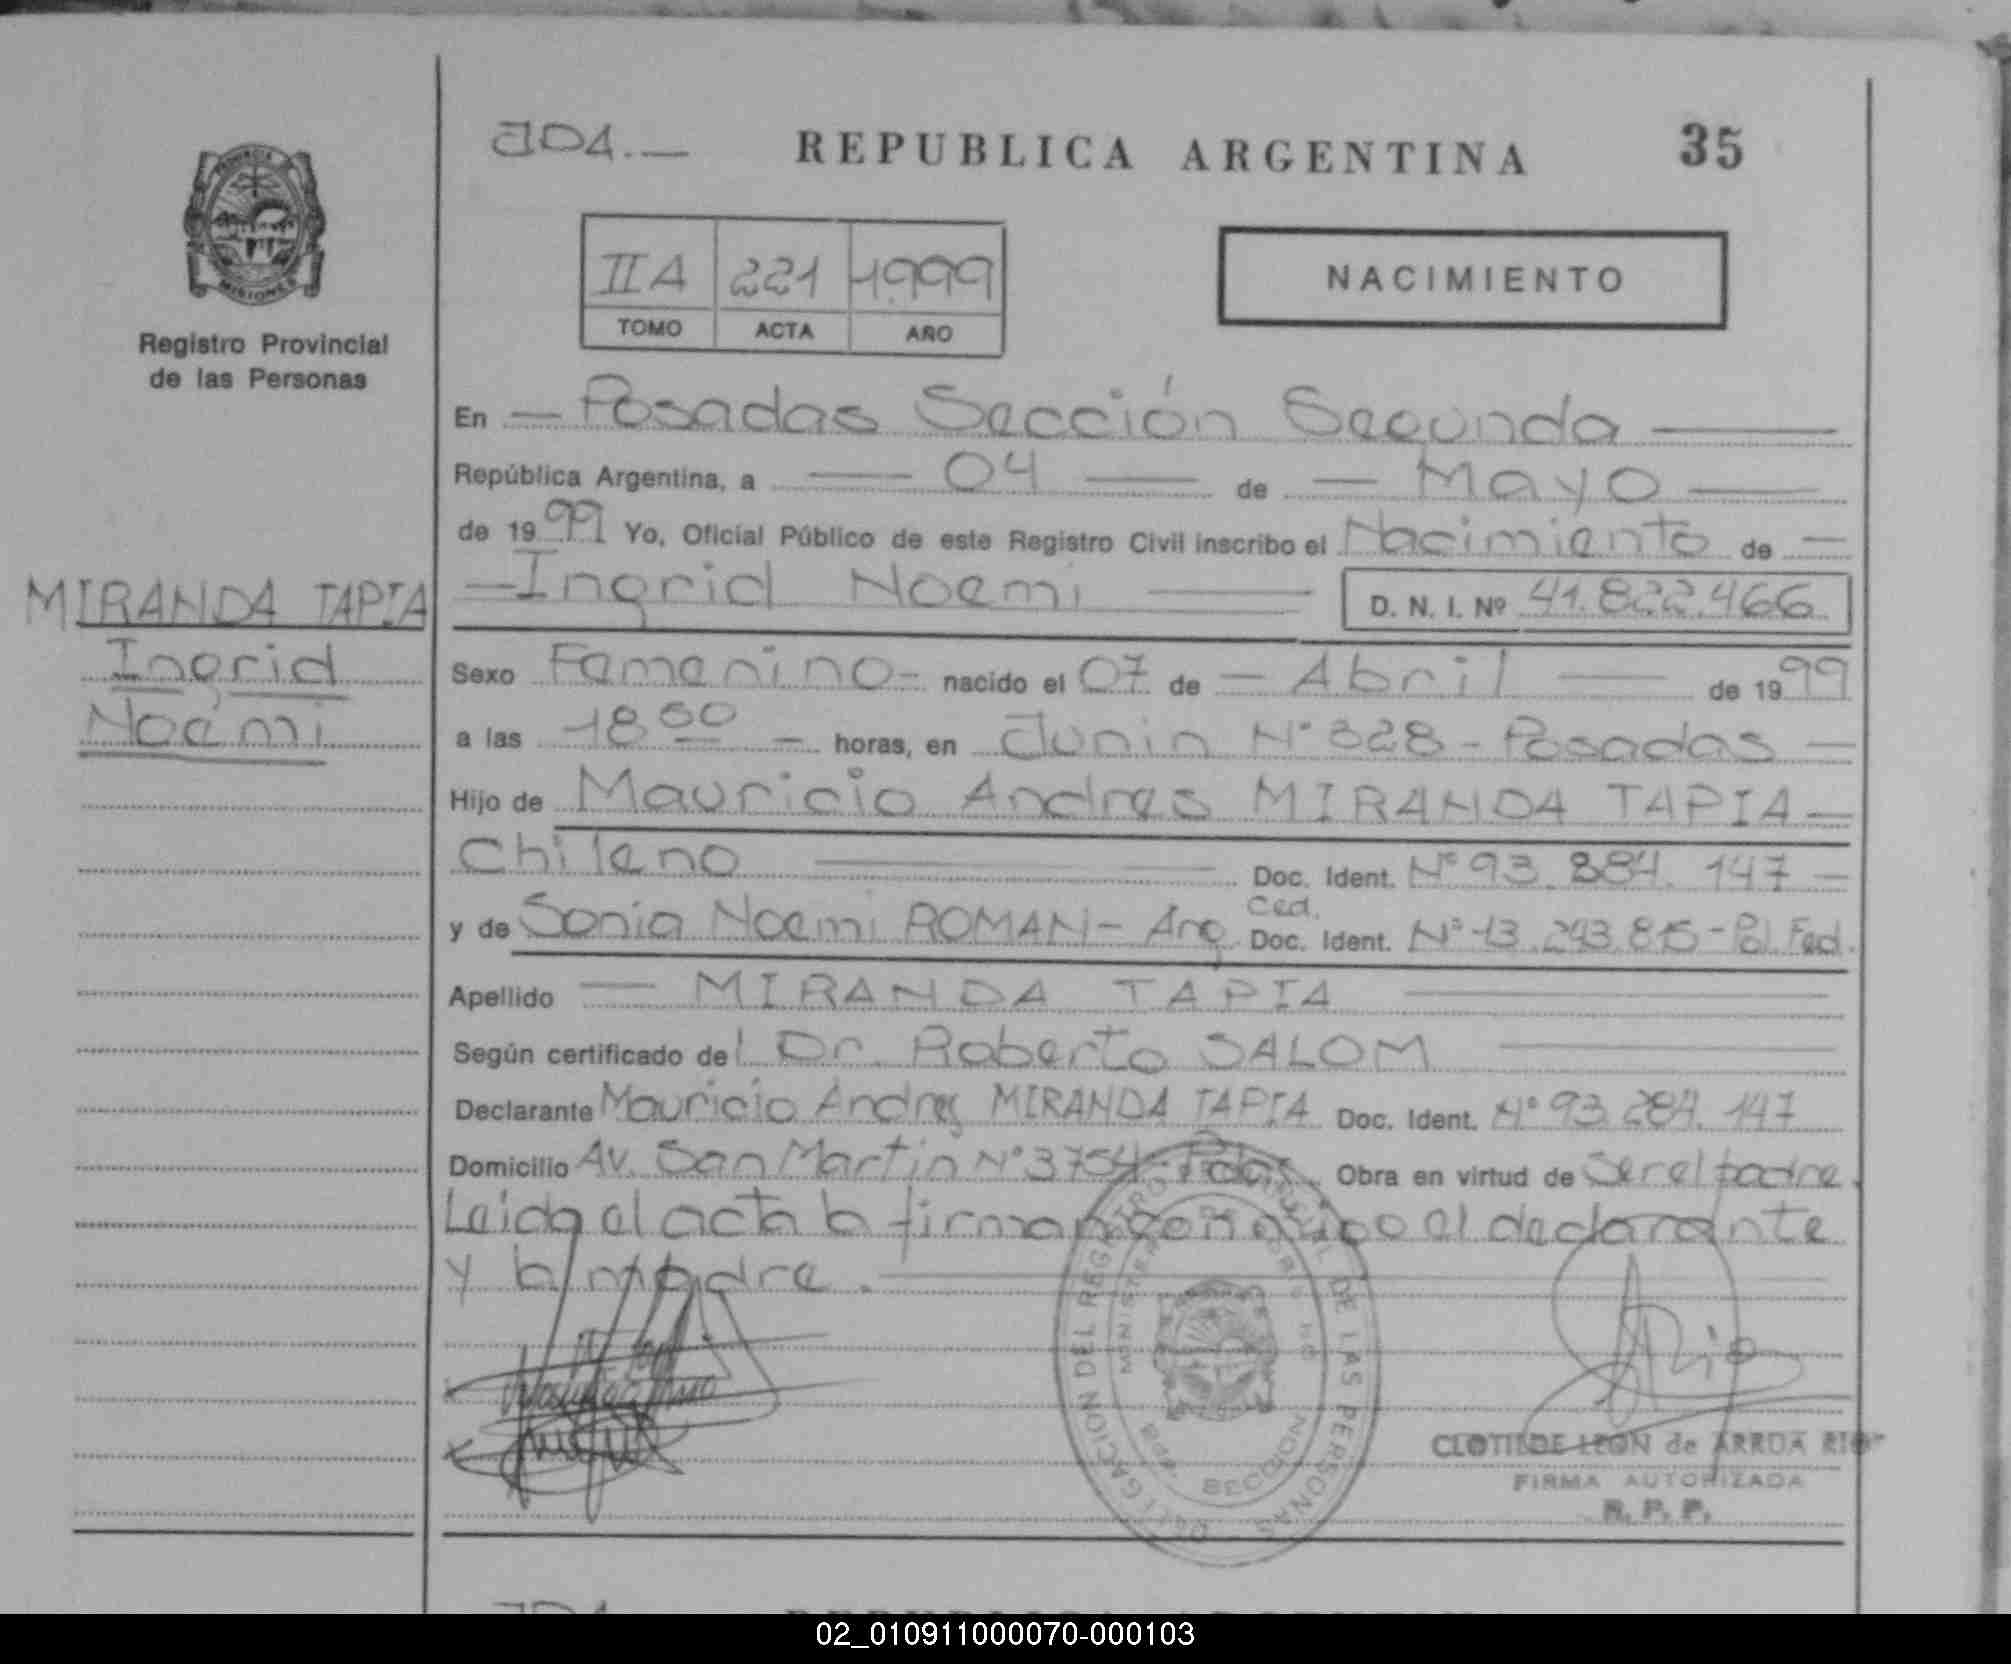 JDA.—
REPUBLICA ARGENTINA
35
PROVINCIA
MISIONES
Registro Provincial
de las Personas
II A 221 1.999
TOMO ACTA AÑO
NACIMIENTO
En — Posadas Sección Segunda —
República Argentina, a — 04 — de — Mayo —
de 1999 Yo, Oficial Público de este Registro Civil inscribo el Nacimiento de —
MIRANDA TAPIA
Ingrid
Noemi
— Ingrid Noemi — D. N. I. Nº 41.822.466
Sexo Femenino - nacido el 07 de — Abril — de 1999
a las 18 00 — horas, en Junin Nº 328 - Posadas —
Hijo de Mauricio Andres MIRANDA TAPIA —
Chileno — Doc. Ident. Nº 93.284.147 —
Ced.
y de Sonia Noemi ROMAN - Arg. Doc. Ident. Nº 13.243.815 - Pol. Fed.
Apellido — MIRANDA TAPIA —
Según certificado del Dr. Roberto SALOM —
Declarante Mauricio Andres MIRANDA TAPIA Doc. Ident. Nº 93.284.147
Domicilio Av. San Martin Nº 3754 - Pdas. Obra en virtud de Ser el padre.
Leida el acta la firman conmigo el declarante
y la madre. —
DELEGACION DEL REGISTRO PROVINCIAL DE LAS PERSONAS
MINISTERIO DE GOBIERNO
SECCION
CLOTILDE LEON de ARRUA RIOS
FIRMA AUTORIZADA
R. P. P.
JDA
02_010911000070-000103